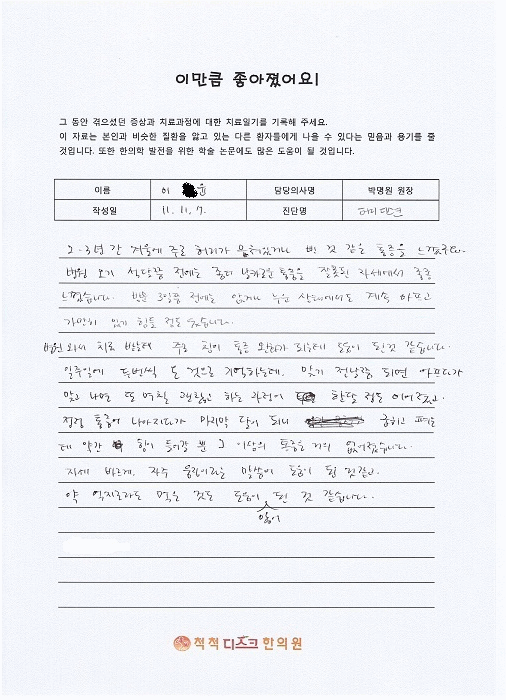 이만큼 좋아졌어요!
그 동안 겪으셨던 증상과 치료과정에 대한 치료일기를 기록해 주세요.
이 자료는 본인과 비슷한 질환을 앓고 있는 다른 환자들에게 나을 수 있다는 믿음과 용기를 줄
것입니다. 또한 한의학 발전을 위한 학술 논문에도 많은 도움이 될 것입니다.
이름 이 윤 담당의사명 박명원 원장
작성일 11. 11. 7. 진단명
2-3년 간 겨울에 주로 허리가 삔 것 같은 통증을 느꼈구요.
병원 오기 전에는 좀더 날카로운 통증을 잘못된 자세에서 종종
느꼈습니다. 전에는 앉거나 누운 상태에서도 계속 아프고
가만히 있기 힘들 정도였습니다.
병원 와서 치료 받을때 주로 침이 통증 완화가 되는데 도움이 된것 같습니다.
일주일에 두번씩 온 것으로 기억하는데, 맞기 전날쯤 되면 아프다가
맞고 나면 또 며칠 괜찮고 하는 과정이 한달 정도 이어졌고.
점점 통증이 나아지다가 마지막 달이 되니 굽히고 펴는
데 약간 힘이 들어갈 뿐 그 이상의 통증은 거의 없어졌습니다.
자세 바르게, 자주 움직이라는 말씀이 도움이 된 것같고.
약 억지로라도 먹은 것도 도움이 많이 된 것 같습니다.
척척 디스크 한의원